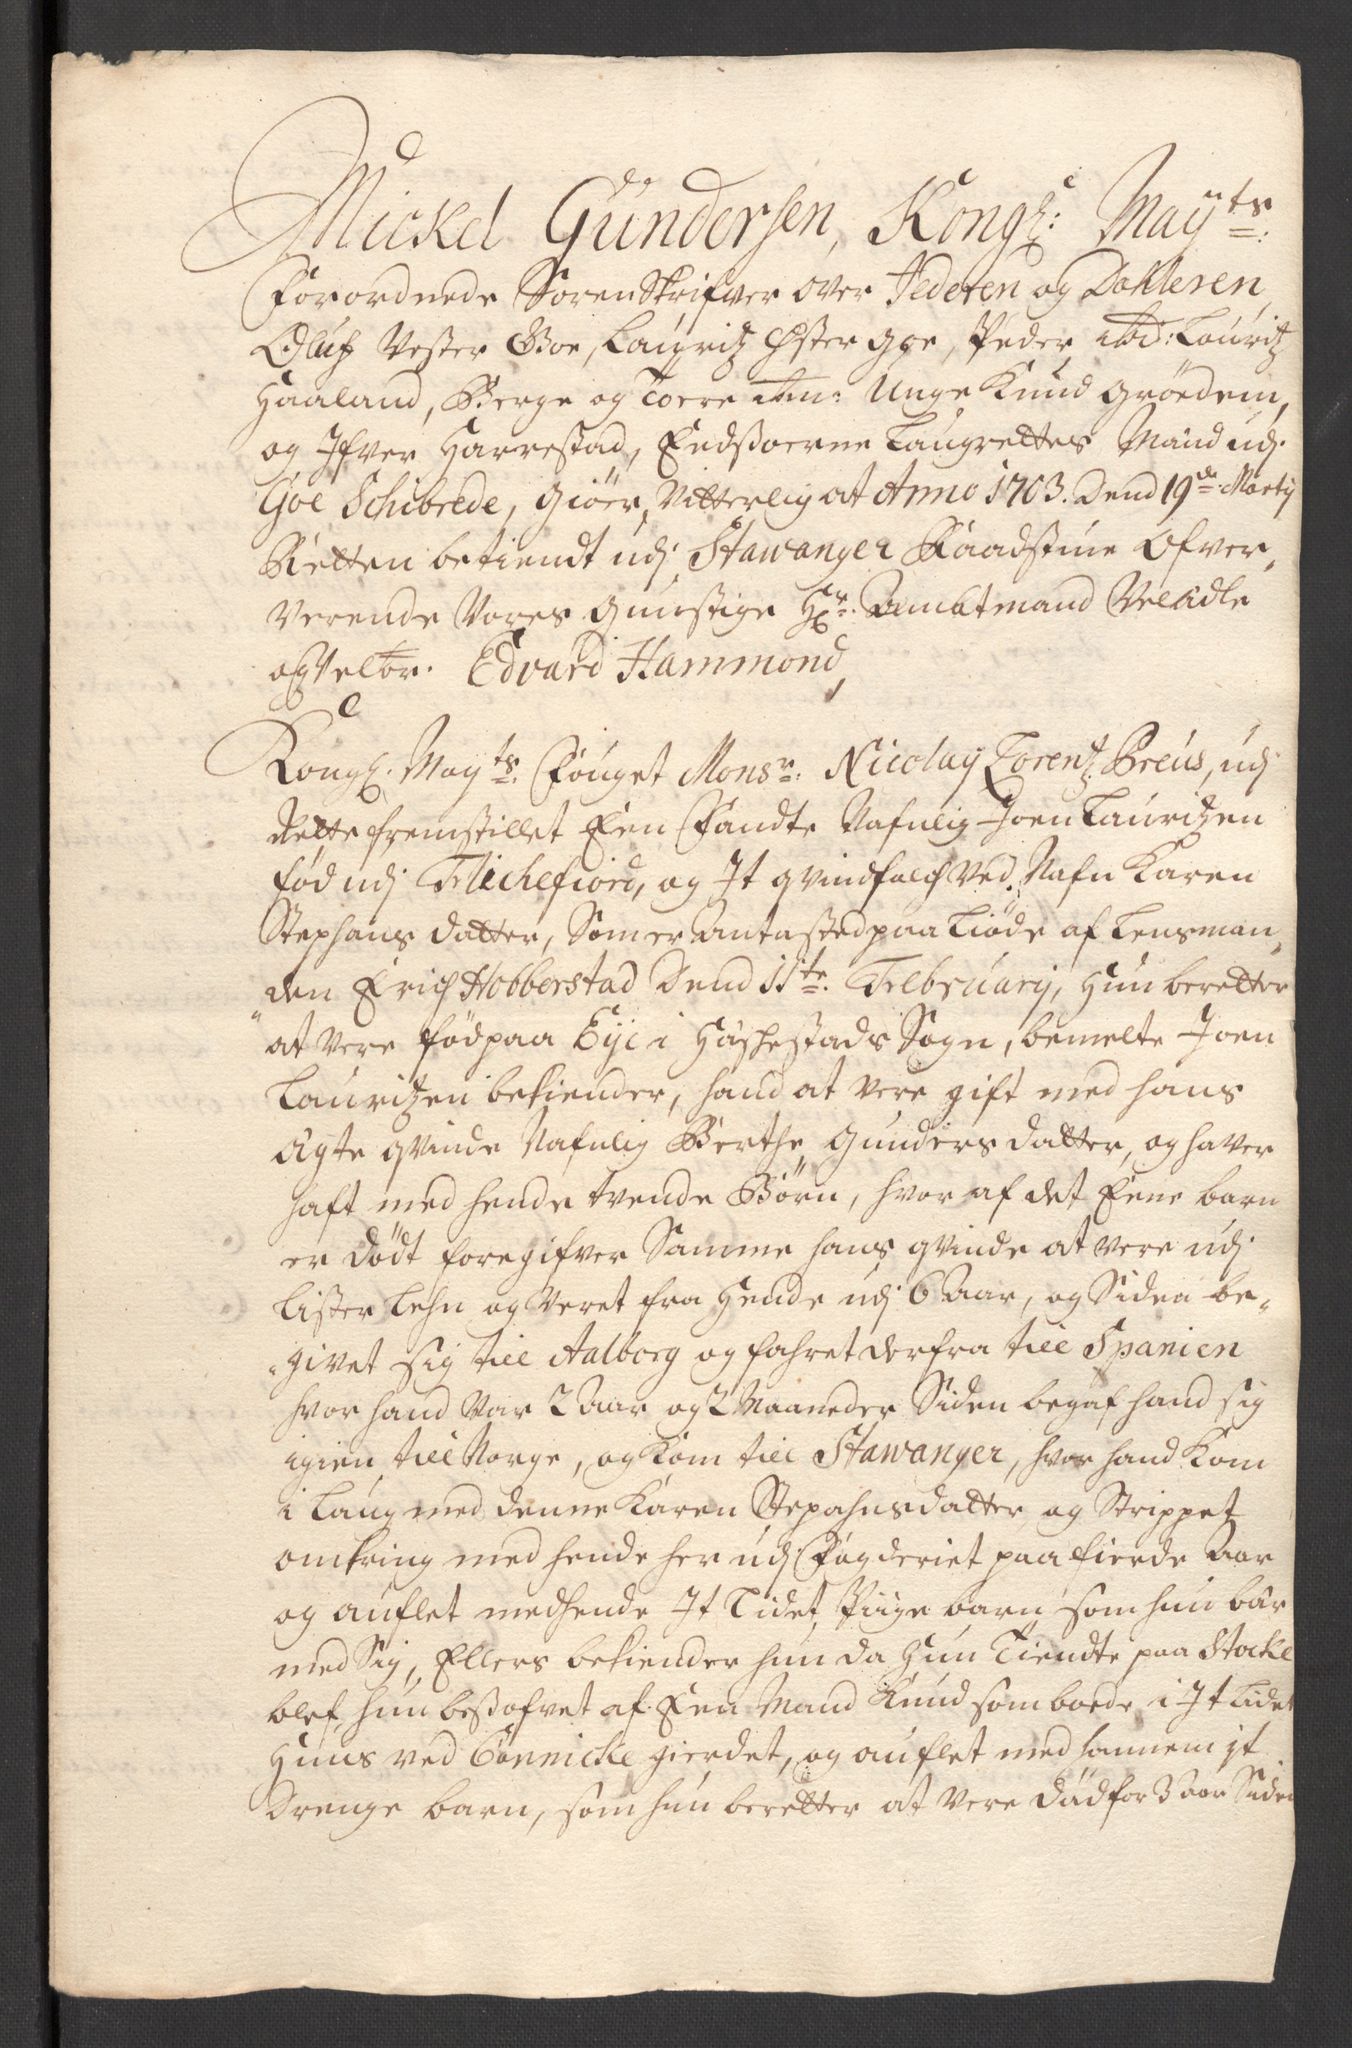 Mickel Gundersen, Kongl: Mayts:
Forordnede Sorenskrifver over Jederen og Dahlerne,
Oluf Vester Goe, Lauridtz Øster Goe, Peder ibid: Lauritz
Haaland, Berge og Tore ibm: Unge Knud Grödem,
og Ifver Harrestad, Eedsoerne Laugrettes Mænd udj
Goe Schibrede, Giör Vitterlig at Anno 1703. Dend 19de Marty
Retten betiendt udj Stawanger Raadstue Ofver-
verende Vores gunstige Hr. Ambtmand Velædle
og Velbr. Edvard Hammond,
Kongl. Mayts. Fouget Monsr: Nicolay Lorentz Preus, udj
Rette fremstillet Een Fandte Nafnlig Joen Lauridtzen
fød udj Fleckefiord, og It qvindfolch ved Nafn Karen
Stephans datter, Som er Antasted paa Tiöde af Lensman-
den Erich Hobberstad Dend 11te. February, Hun beretter
at vere fød paa Eye i Häskestads Sogn, bemelte Joen
Lauridtzen bekiender, hand at vere gift med hans
Ægte qvinde Nafnlig Berthe Gunders datter, og haver
haft med hende tvende Börn, hvor af det Eene barn
er dödt foregifver Samme hans qvinde at vere udj
Lister Lehn og veret fra Hende udj 6 Aar, og Siden be-
givet sig till Aalborg og fahret derfra till Spanien
hvor hand var 2 Aar og 2 Maaneder Siden begaf hand sig
igien till Norge, og kom till Stawanger, hvor hand kom
i Laug med denne Karen Stepahnsdatter og Strippet
omkring med hende her udj Fogderiet paa fierde Aar
og auflet med hende It Lidet Piige barn som hun bär
med Sig, Ellers bekiender hun da Hun Tiendte paa Stocke
blef hun besofvet af Een Mand Knud som boede i It Lidet
Huus ved Connicke gierdet, og auflet med hannem it
Drenge barn, som hun beretter at vere död for 3 aar Siden